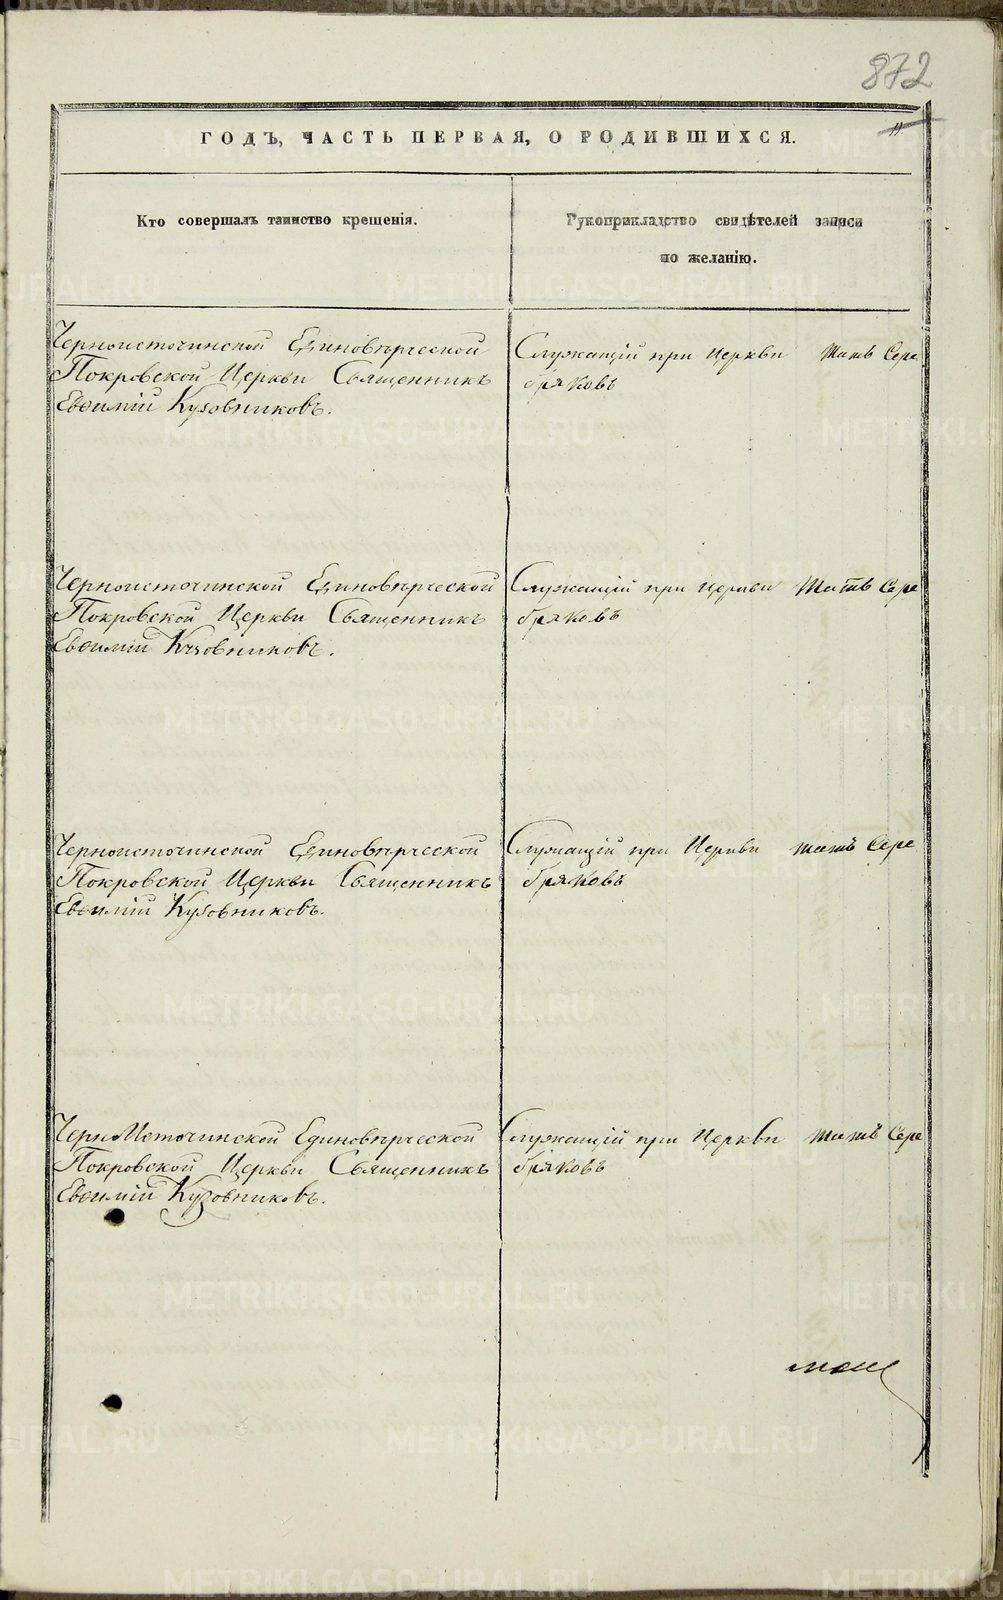 872
11
ГОДЪ, ЧАСТЬ ПЕРВАЯ, О РОДИВШИХСЯ.
Кто совершалъ таинство крещенія.
Рукоприкладство свидѣтелей записи
по желанію.
Черноисточинской Единовѣрческой
Покровской Церкви Священникъ
Евѳимій Кузовниковъ.
Служащій при Церкви Сере
бряковъ
Черноисточинской Единовѣрческой
Покровской Церкви Священникъ
Евѳимій Кузовниковъ.
Служащій при Церкви Сере
бряковъ
Черноисточинской Единовѣрческой
Покровской Церкви Священникъ
Евѳимій Кузовниковъ.
Служащій при Церкви Сере
бряковъ
ЧерноИсточинской Единовѣрческой
Покровской Церкви Священникъ
Евѳимій Кузовниковъ.
Служащій при Церкви Сере
бряковъ
METRIKI.GASO-URAL.RU